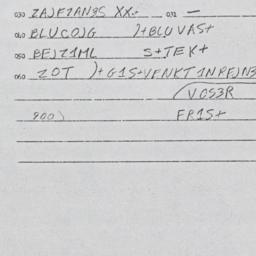 030 ZAJFZAN95 XX+ 031 —
040 BLUCOJG )+BLUVAS+
050 BEJZ1ML S+TEK+
060 ZOT )+G1S+VFNKT1NPEJNE
VOS3R
900) FR1S+